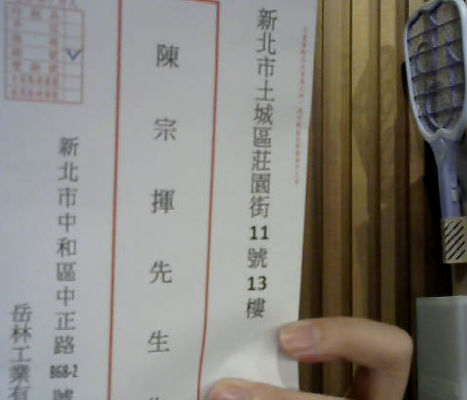 新北市土城區莊園街11號13樓
陳宗揮先生
新北市中和區中正路868-2號
岳林工業有